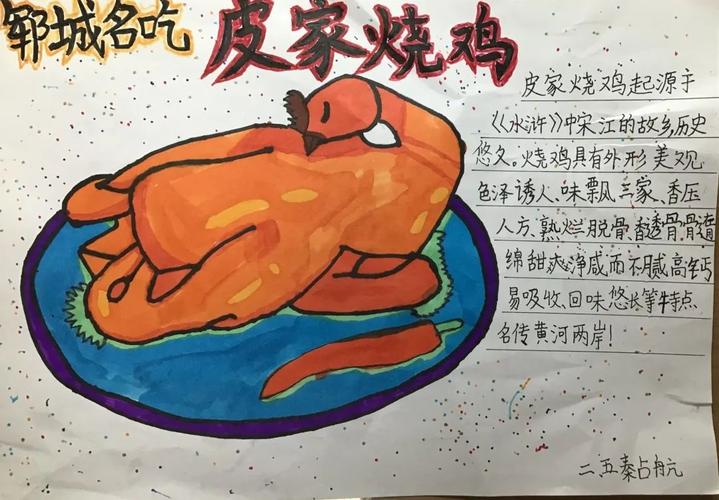 郓城名吃
皮家烧鸡
皮家烧鸡起源于
《水浒》中宋江的故乡,历史
悠久。烧鸡具有外形美观
色泽诱人、味飘三家、香压
人方、熟烂脱骨、香透骨髓
绵甜,咸而不腻高钙
易吸收、回味悠长等特点
名传黄河两岸!
二、五秦占航